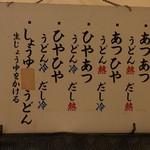 ・あつあつ
うどん熱 だし熱
・あつひや
うどん熱 だし冷
・ひやあつ
うどん冷 だし熱
・ひやひや
うどん冷 だし冷
・しょうゆうどん
生じょうゆをかける